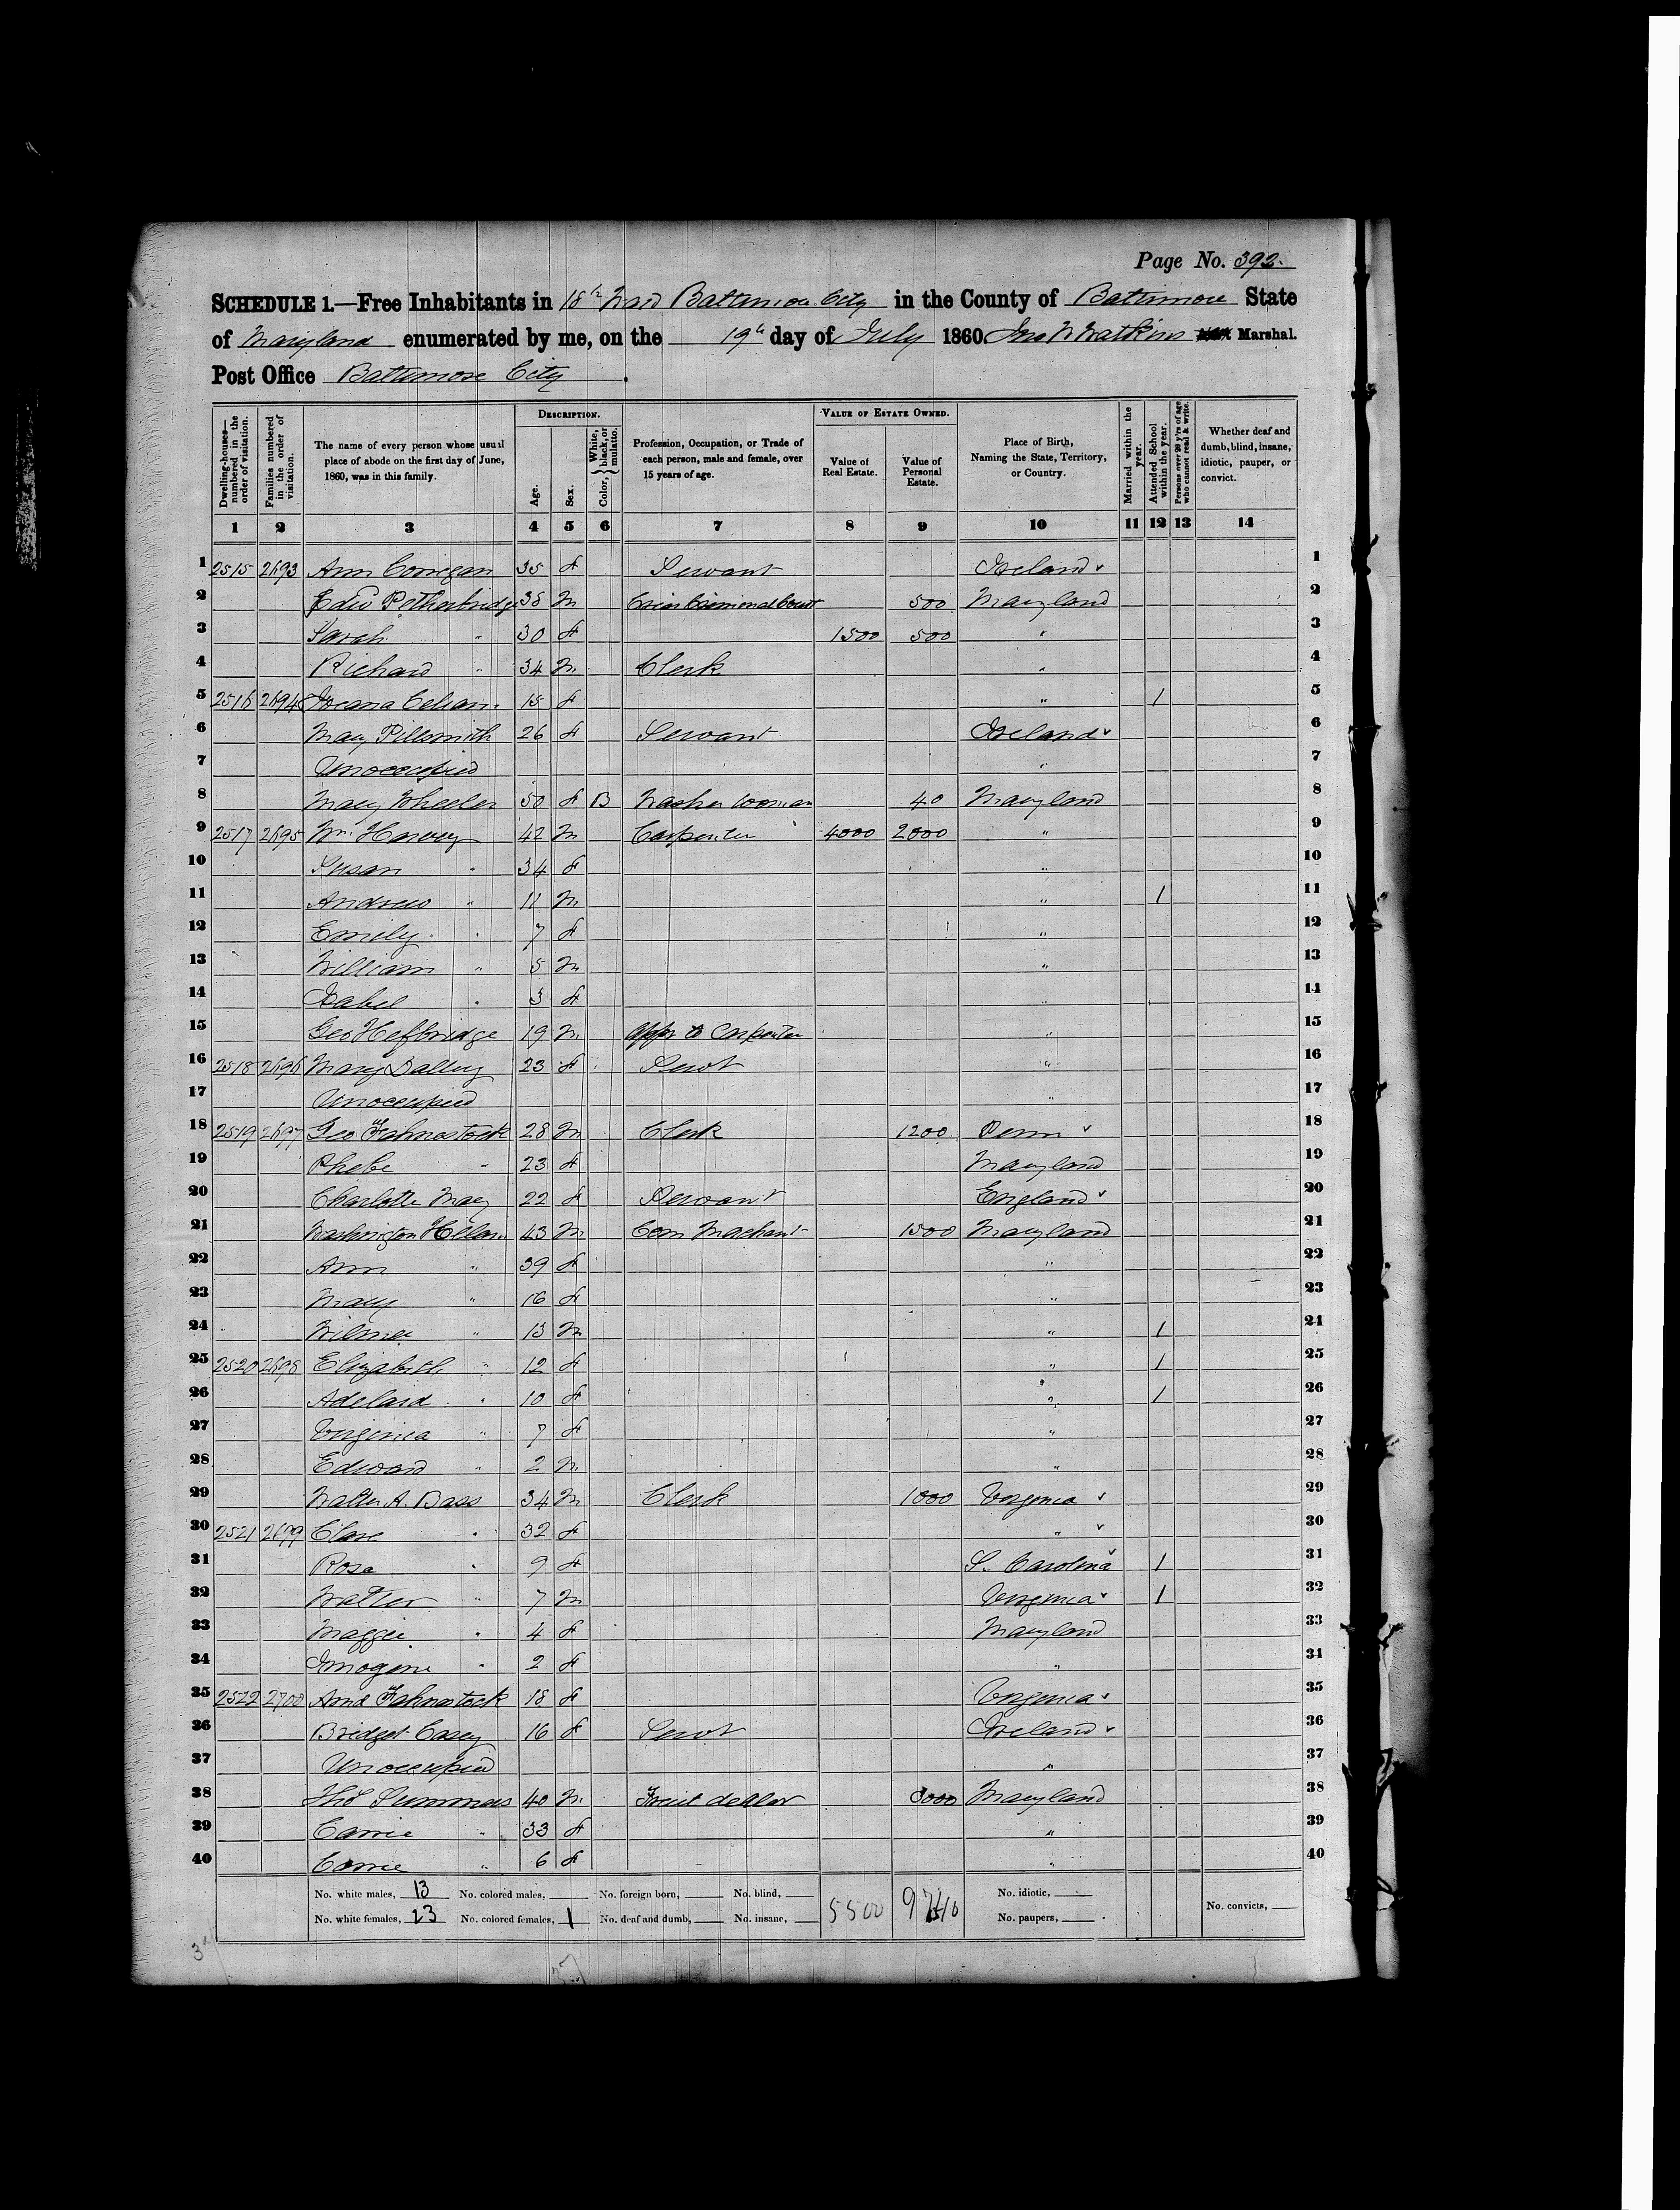 Page No. 392.
SCHEDULE 1.—Free Inhabitants in 18th Ward Baltimore City in the County of Baltimore State
of Maryland enumerated by me, on the 19th day of July 1860. Jno W Watkins Marshal.
Post Office Baltimore City.
Dwelling-houses—numbered in the order of visitation. Families numbered in the order of visitation. The name of every person whose usual place of abode on the first day of June, 1860, was in this family. DESCRIPTION. Age. Sex. Color, { White, black, or mulatto. Profession, Occupation, or Trade of each person, male and female, over 15 years of age. VALUE OF ESTATE OWNED. Value of Real Estate. Value of Personal Estate. Place of Birth, Naming the State, Territory, or Country. Married within the year. Attended School within the year. Persons over 20 y'rs of age who cannot read & write. Whether deaf and dumb, blind, insane, idiotic, pauper, or convict.
1 2 3 4 5 6 7 8 9 10 11 12 13 14
1 2515 2693 Ann Corrigan 35 f Servant Ireland ✓ 1
2 Edw Petherbridge 38 m Criminal Court 500 Maryland 2
3 Sarah " 30 f 1500 500 " 3
4 Richard " 34 m Clerk " 4
5 2516 2694 15 f " 1 5
6 Mary Pillsmith 26 f Servant Ireland ✓ 6
7 Unoccupied " 7
8 Mary Wheeler 50 f B Washer woman 40 Maryland 8
9 2517 2695 Wm Harvey 42 m Carpenter 4000 2000 " 9
10 Susan " 34 f " 10
11 Andrew " 11 m " 1 11
12 Emily " 7 f " 12
13 William " 5 m " 13
14 Isabel " 3 f " 14
15 Geo Hefbridge 19 m appr to Carpenter " 15
16 2518 2696 Mary Dalley 23 f Servt " 16
17 Unoccupied " 17
18 2519 2697 Geo Fahnestock 28 m Clerk 1200 Penn ✓ 18
19 Phebe " 23 f Maryland 19
20 Charlotte May 22 f Servant England ✓ 20
21 Washington 43 m Com Merchant 1500 Maryland 21
22 Ann " 39 f " 22
23 Mary " 16 f " 23
24 Wilmer " 13 m " 1 24
25 2520 2698 Elizabeth " 12 f " 1 25
26 Adelaid " 10 f " 1 26
27 Virginia " 7 f " 27
28 Edward " 2 m " 28
29 Walter A. Bass 34 m Clerk 1000 Virginia ✓ 29
30 2521 2699 Clare " 32 f " ✓ 30
31 Rosa " 9 f S. Carolina ✓ 1 31
32 Walter " 7 m Virginia ✓ 1 32
33 Maggie " 4 f Maryland 33
34 Imogene " 2 f " 34
35 2522 2700 Anna Fahnestock 18 f Virginia ✓ 35
36 Bridget Casey 16 f Servt Ireland ✓ 36
37 Unoccupied " 37
38 Thos Summers 40 m Fruit dealer 3000 Maryland 38
39 Carrie " 33 f " 39
40 Carrie " 6 f " 40
No. white males, 13 No. colored males, No. foreign born, No. blind, 5500 No. idiotic,
No. white females, 23 No. colored females, 1 No. deaf and dumb, No. insane, No. paupers, No. convicts,